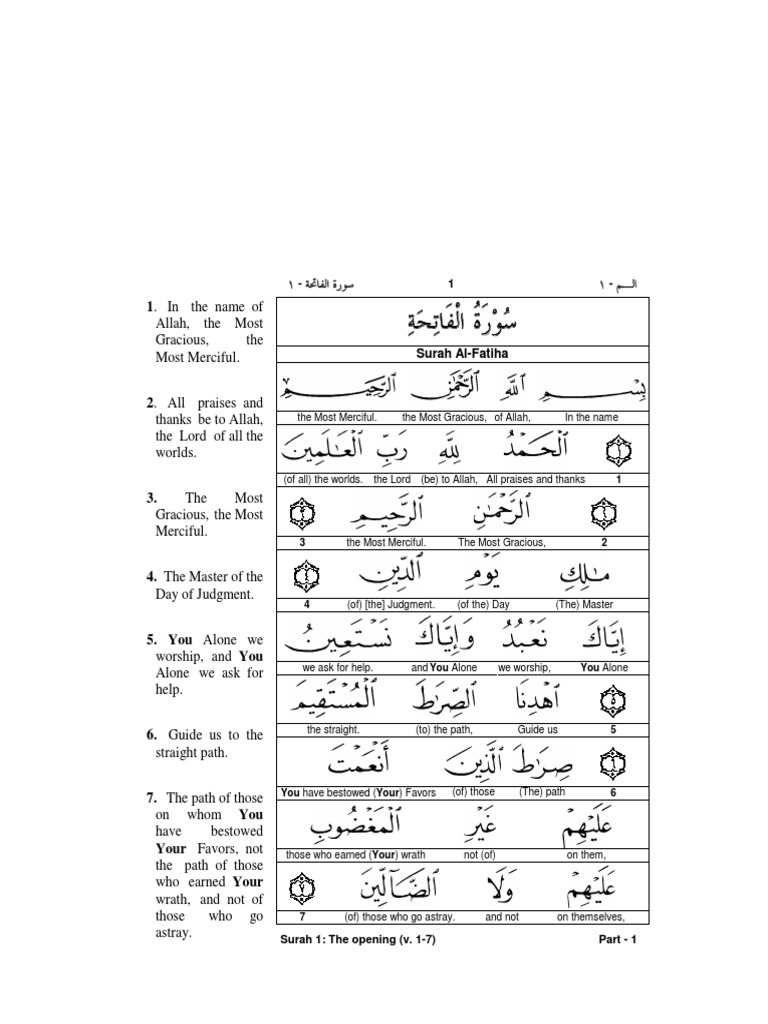 سورة الفاتحة - ١ 1 الـم - ١
1. In the name of
Allah, the Most
Gracious, the
Most Merciful.
2. All praises and
thanks be to Allah,
the Lord of all the
worlds.
3. The Most
Gracious, the Most
Merciful.
4. The Master of the
Day of Judgment.
5. You Alone we
worship, and You
Alone we ask for
help.
6. Guide us to the
straight path.
7. The path of those
on whom You
have bestowed
Your Favors, not
the path of those
who earned Your
wrath, and not of
those who go
astray.
سُوْرَةُ الْفَاتِحَةِ
Surah Al-Fatiha
بِسْمِ اللَّهِ الرَّحْمَٰنِ الرَّحِيمِ
the Most Merciful. the Most Gracious, of Allah, In the name
١ الْحَمْدُ لِلَّهِ رَبِّ الْعَالَمِينَ
(of all) the worlds. the Lord (be) to Allah, All praises and thanks 1
٢ الرَّحْمَٰنِ الرَّحِيمِ ٣
3 the Most Merciful. The Most Gracious, 2
مَالِكِ يَوْمِ الدِّينِ ٤
4 (of) [the] Judgment. (of the) Day (The) Master
إِيَّاكَ نَعْبُدُ وَإِيَّاكَ نَسْتَعِينُ
we ask for help. and You Alone we worship, You Alone
٥ اهْدِنَا الصِّرَاطَ الْمُسْتَقِيمَ
the straight. (to) the path, Guide us 5
٦ صِرَاطَ الَّذِينَ أَنْعَمْتَ
You have bestowed (Your) Favors (of) those (The) path 6
عَلَيْهِمْ غَيْرِ الْمَغْضُوبِ
those who earned (Your) wrath not (of) on them,
عَلَيْهِمْ وَلَا الضَّالِّينَ ٧
7 (of) those who go astray. and not on themselves,
Surah 1: The opening (v. 1-7) Part - 1